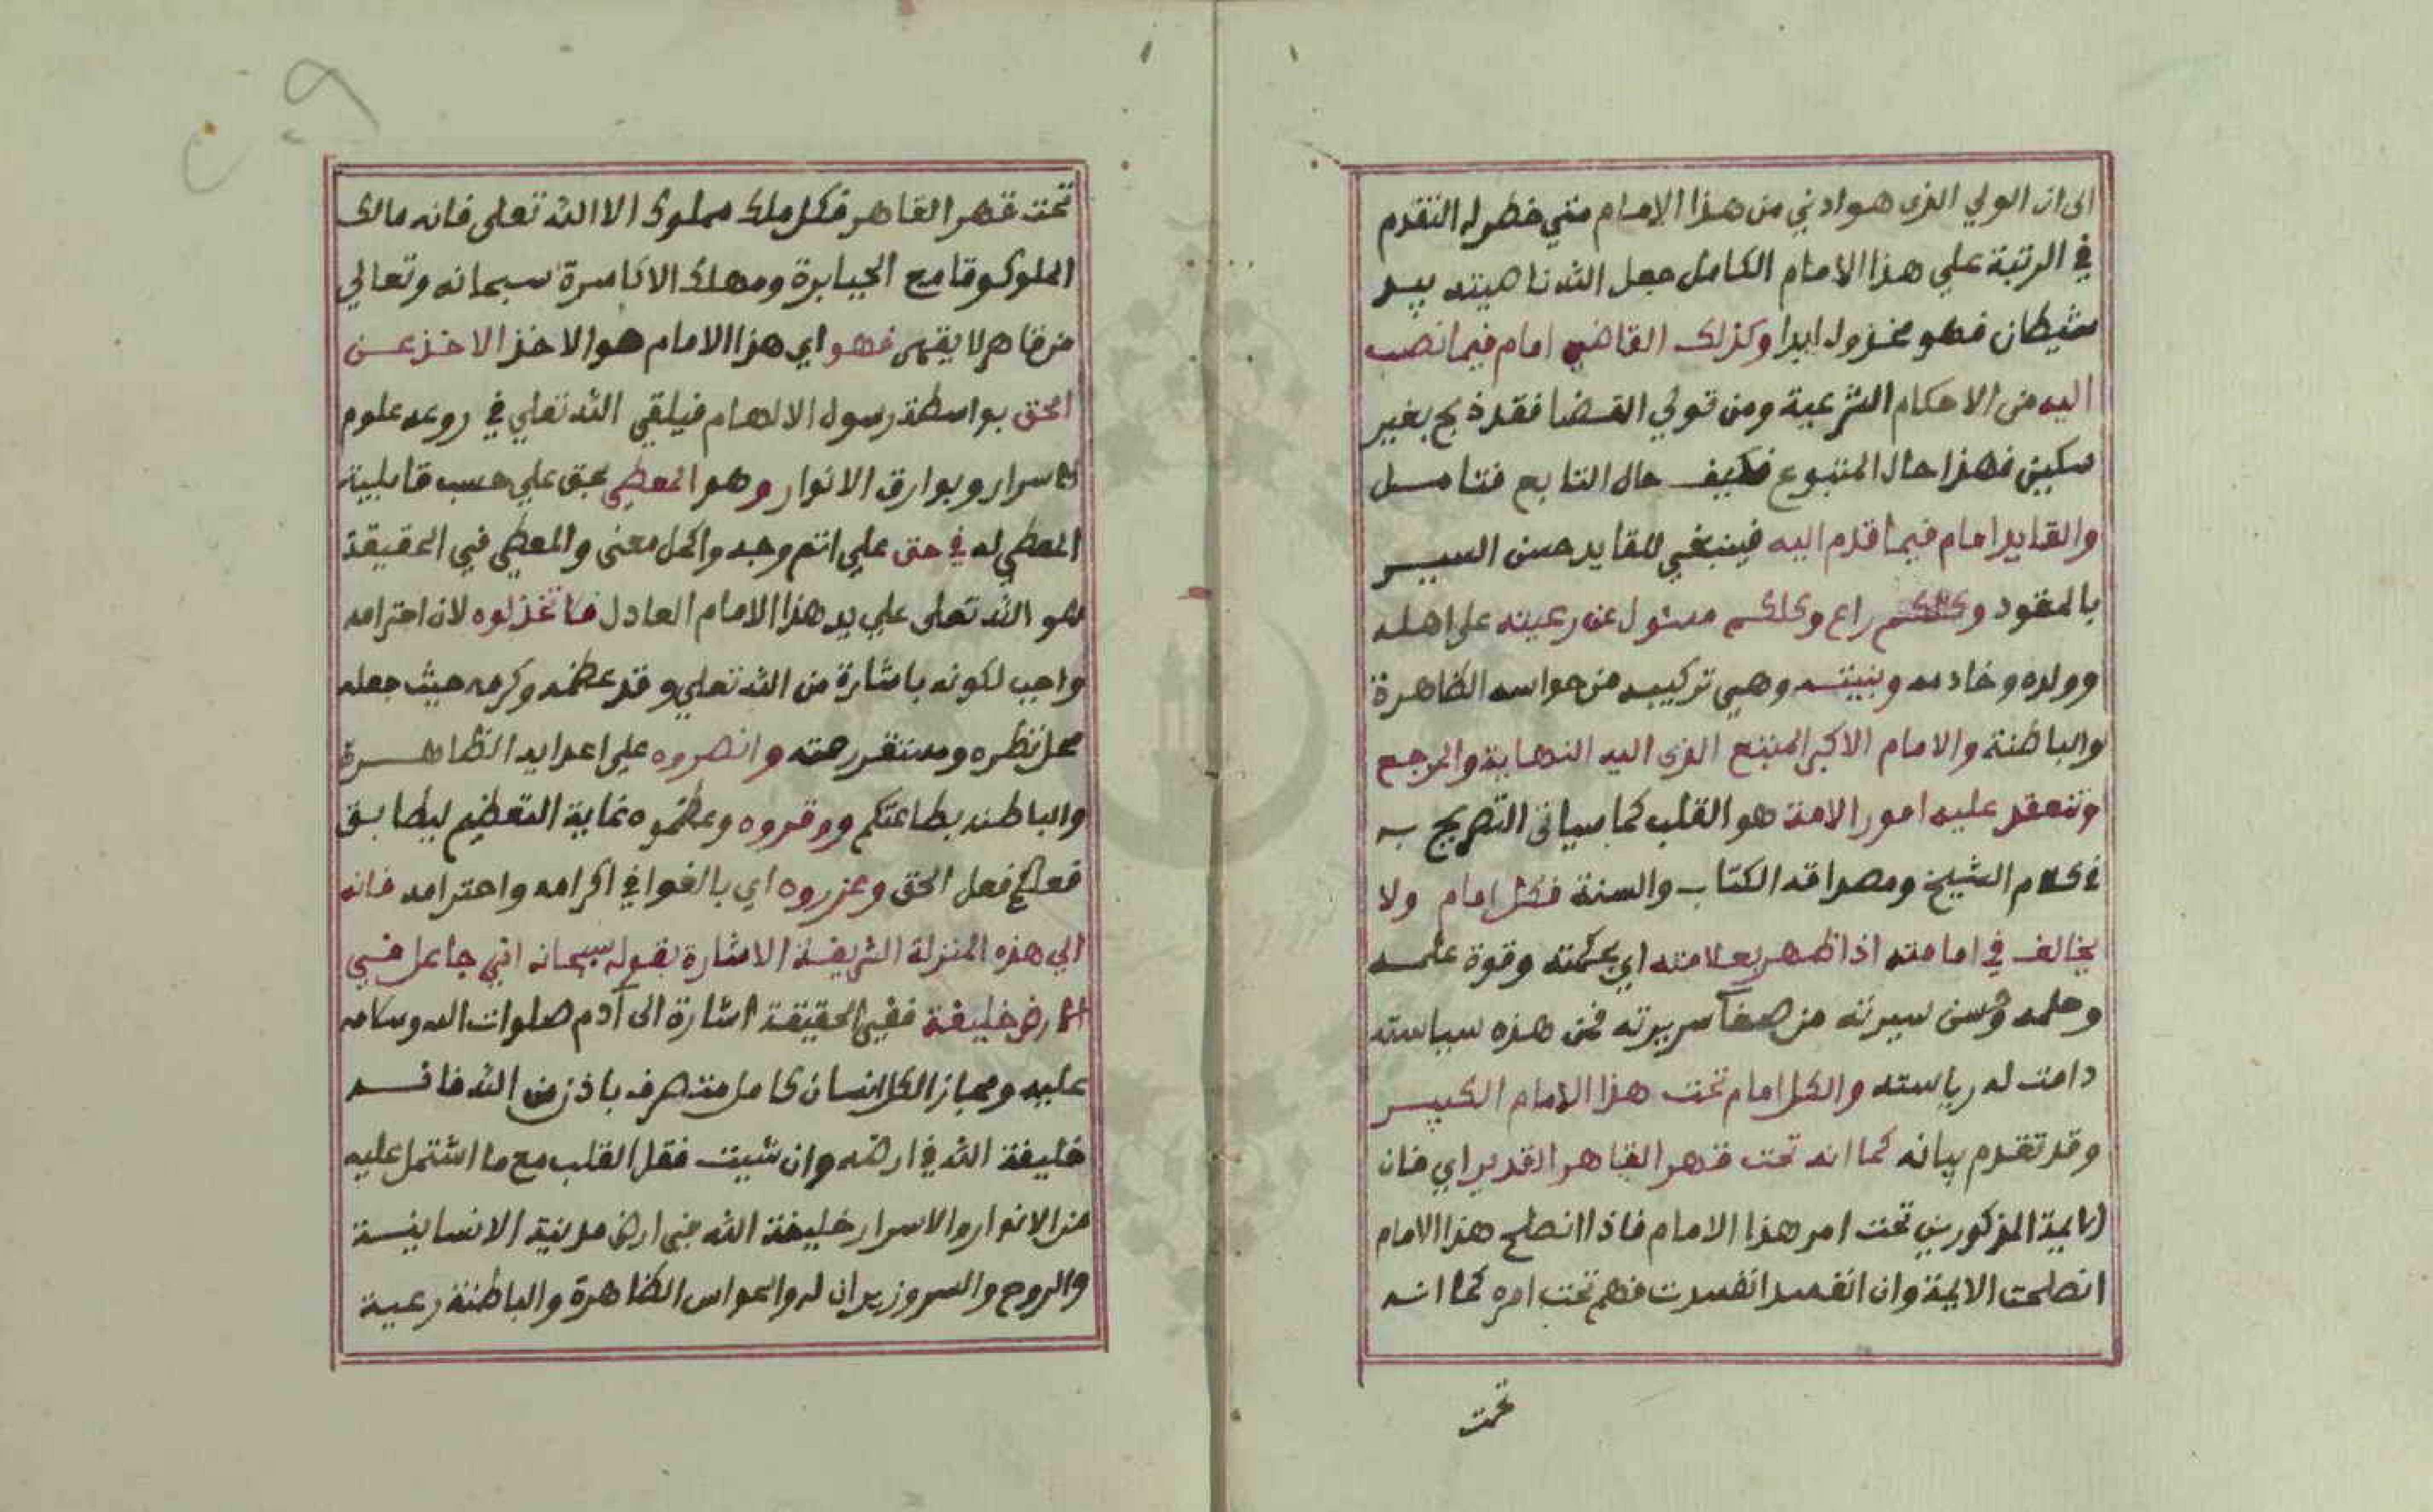 الى ان الولي الذي هو ادني من هذا الامام متي خطر له التقدم
في الرتبة علي هذا الامام الكامل جعل الله ناصيته بيد
شيطان فهو مخذول ابدا وكذلك القاضي امام فيما نصب
اليه من الاحكام الشرعية ومن تولي القضا فقد ذبح بغير
سكين فهذا حال المتبوع فكيف حال التابع فتامل
والقايد امام فيما قدم اليه فينبغي للقايد حسن السير
بالمقود وكلكم راع وكلكم مسئول عن رعيته على اهله
وولده وخادمه وبنيته وهي تركيبه من حواسه الظاهرة
والباطنة والامام الاكبر المتبع الذي اليه النهاية والمرجع
وتنعقد عليه امور الامة هو القلب كما سياتى التصريح به
في كلام الشيخ ومصداقه الكتاب والسنة فكل امام ولا
يخالف في امامته اذا ظهر بعلامته اي بحكمته وقوة علمه
وحلمه وحسن سيرته من صفا سريرته فمن هذه سياسته
دامت له رياسته والكل امام تحت هذا الامام الكبير
وقد تقدم بيانه كما انه تحت قهر القاهر القدير اي فان
الايمة المذكورين تحت امر هذا الامام فاذا انصلح هذا الامام
انصلحت الايمة وان انفسد انفسدت فهم تحت امره كما انه
تحت
تحت قهر القاهر فكل ملك مملوك الا الله تعلى فانه مالك
الملوك وقامع الجبابرة ومهلك الاكاسرة سبحانه وتعالي
من قاهر لا يقهر فهو اي هذا الامام هو الاخذ الاخذ عن
الحق بواسطة رسول الالهام فيلقي الله تعلي في روعه علوم
الاسرار وبوارق الانوار وهو المعطي بحق علي حسب قابلية
المعطي له في حق علي اتم وجه واكمل معنى والمعطي في الحقيقة
هو الله تعلى علي يد هذا الامام العادل فلا تخذلوه لان احترامه
واجب لكونه باشارة من الله تعلي وقد عظمه وكرمه حيث جعله
محل نظره ومستقر رحمته وانصروه علي اعدايه الظاهرة
والباطنه بطاعتكم ووقروه وعظموه غاية التعظيم ليطابق
فعلكم فعل الحق وعزروه اي بالغوا في اكرامه واحترامه فانه
الي هذه المنزلة الشريفة الاشارة بقوله سبحانه اني جاعل في
الارض خليفة ففي الحقيقة اشارة الى آدم صلوات الله وسلامه
عليه ومجاز الكل انسان كامل متصرف باذن من الله فانه
خليفة الله في ارضه وان شيت فقل القلب مع ما اشتمل عليه
من الانوار والاسرار خليفة الله في ارض مدينة الانسانية
والروح والسر وزيران له والحواس الظاهرة والباطنة رعية